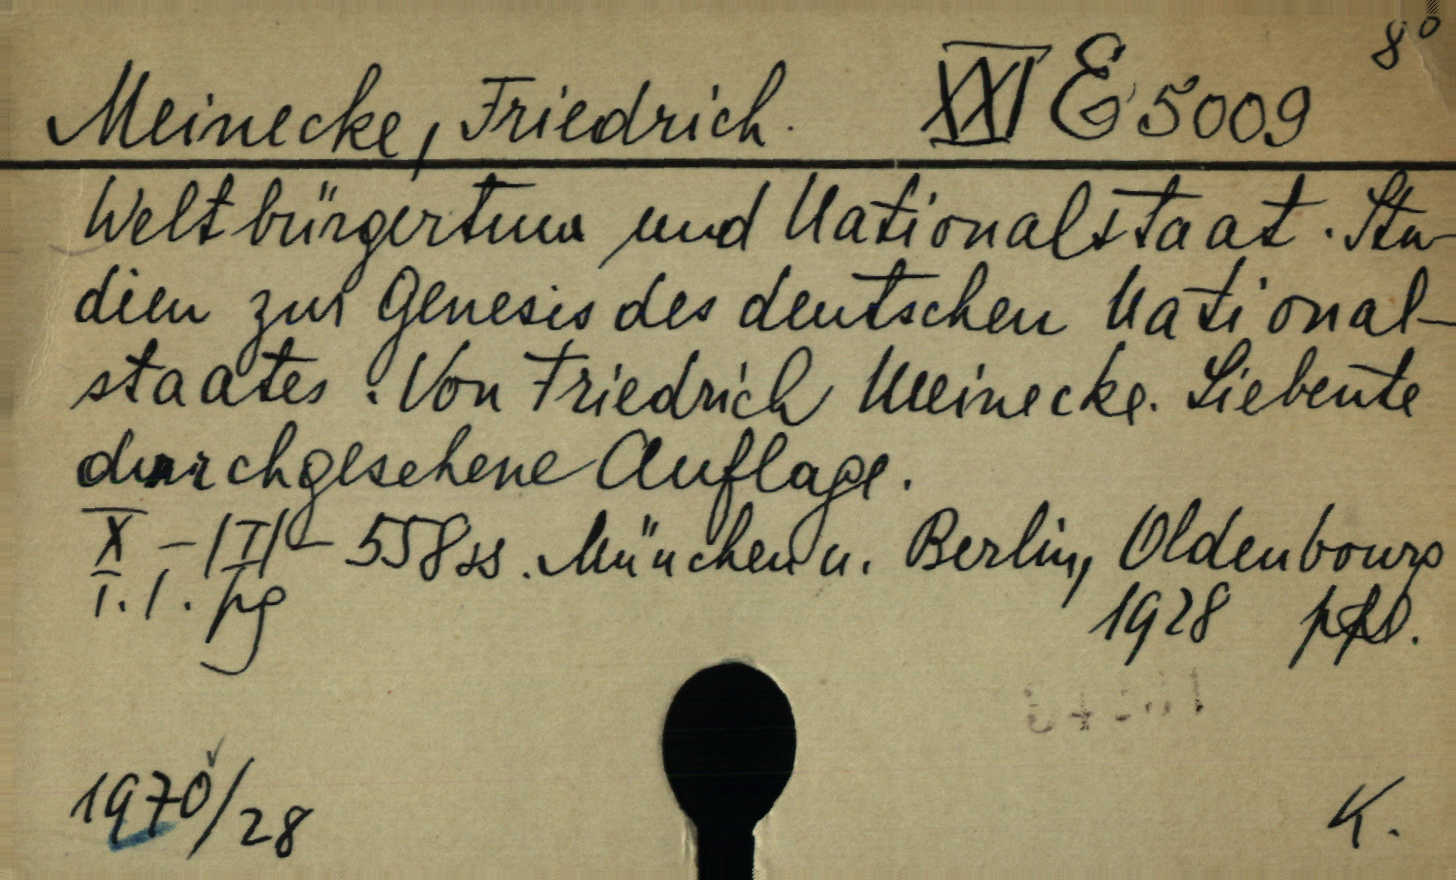 8°
Meinecke, Friedrich. XXI E 5009
Weltbürgertum und Nationalstaat. Stu-
dien zur Genesis des deutschen National-
staates. Von Friedrich Meinecke. Siebente
durchgesehene Auflage.
X – |I| – 558 ss. München u. Berlin, Oldenbourg
I. 1. pg 1928 ppl.
1970/28
K.